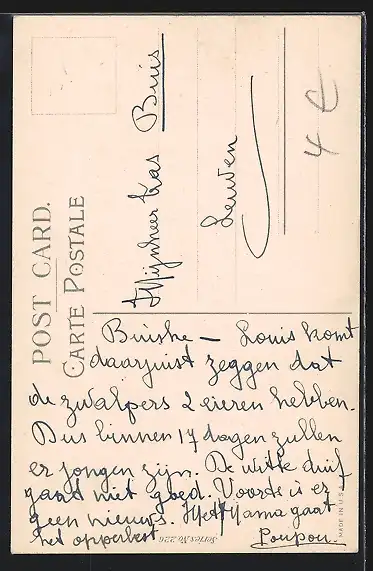 POST CARD.
CARTE POSTALE
Mijnheer Kas Buis
Leuven
4 €
Buiske – Louis komt
daarjuist zeggen dat
de zwalpers 2 eieren hebben.
Dus binnen 17 dagen zullen
er jongen zijn. De witte duif
gaat niet goed. Voorts is er
geen nieuws. Met Mama gaat
het opperbest. Poupou.
Series No. 226
MADE IN U.S.